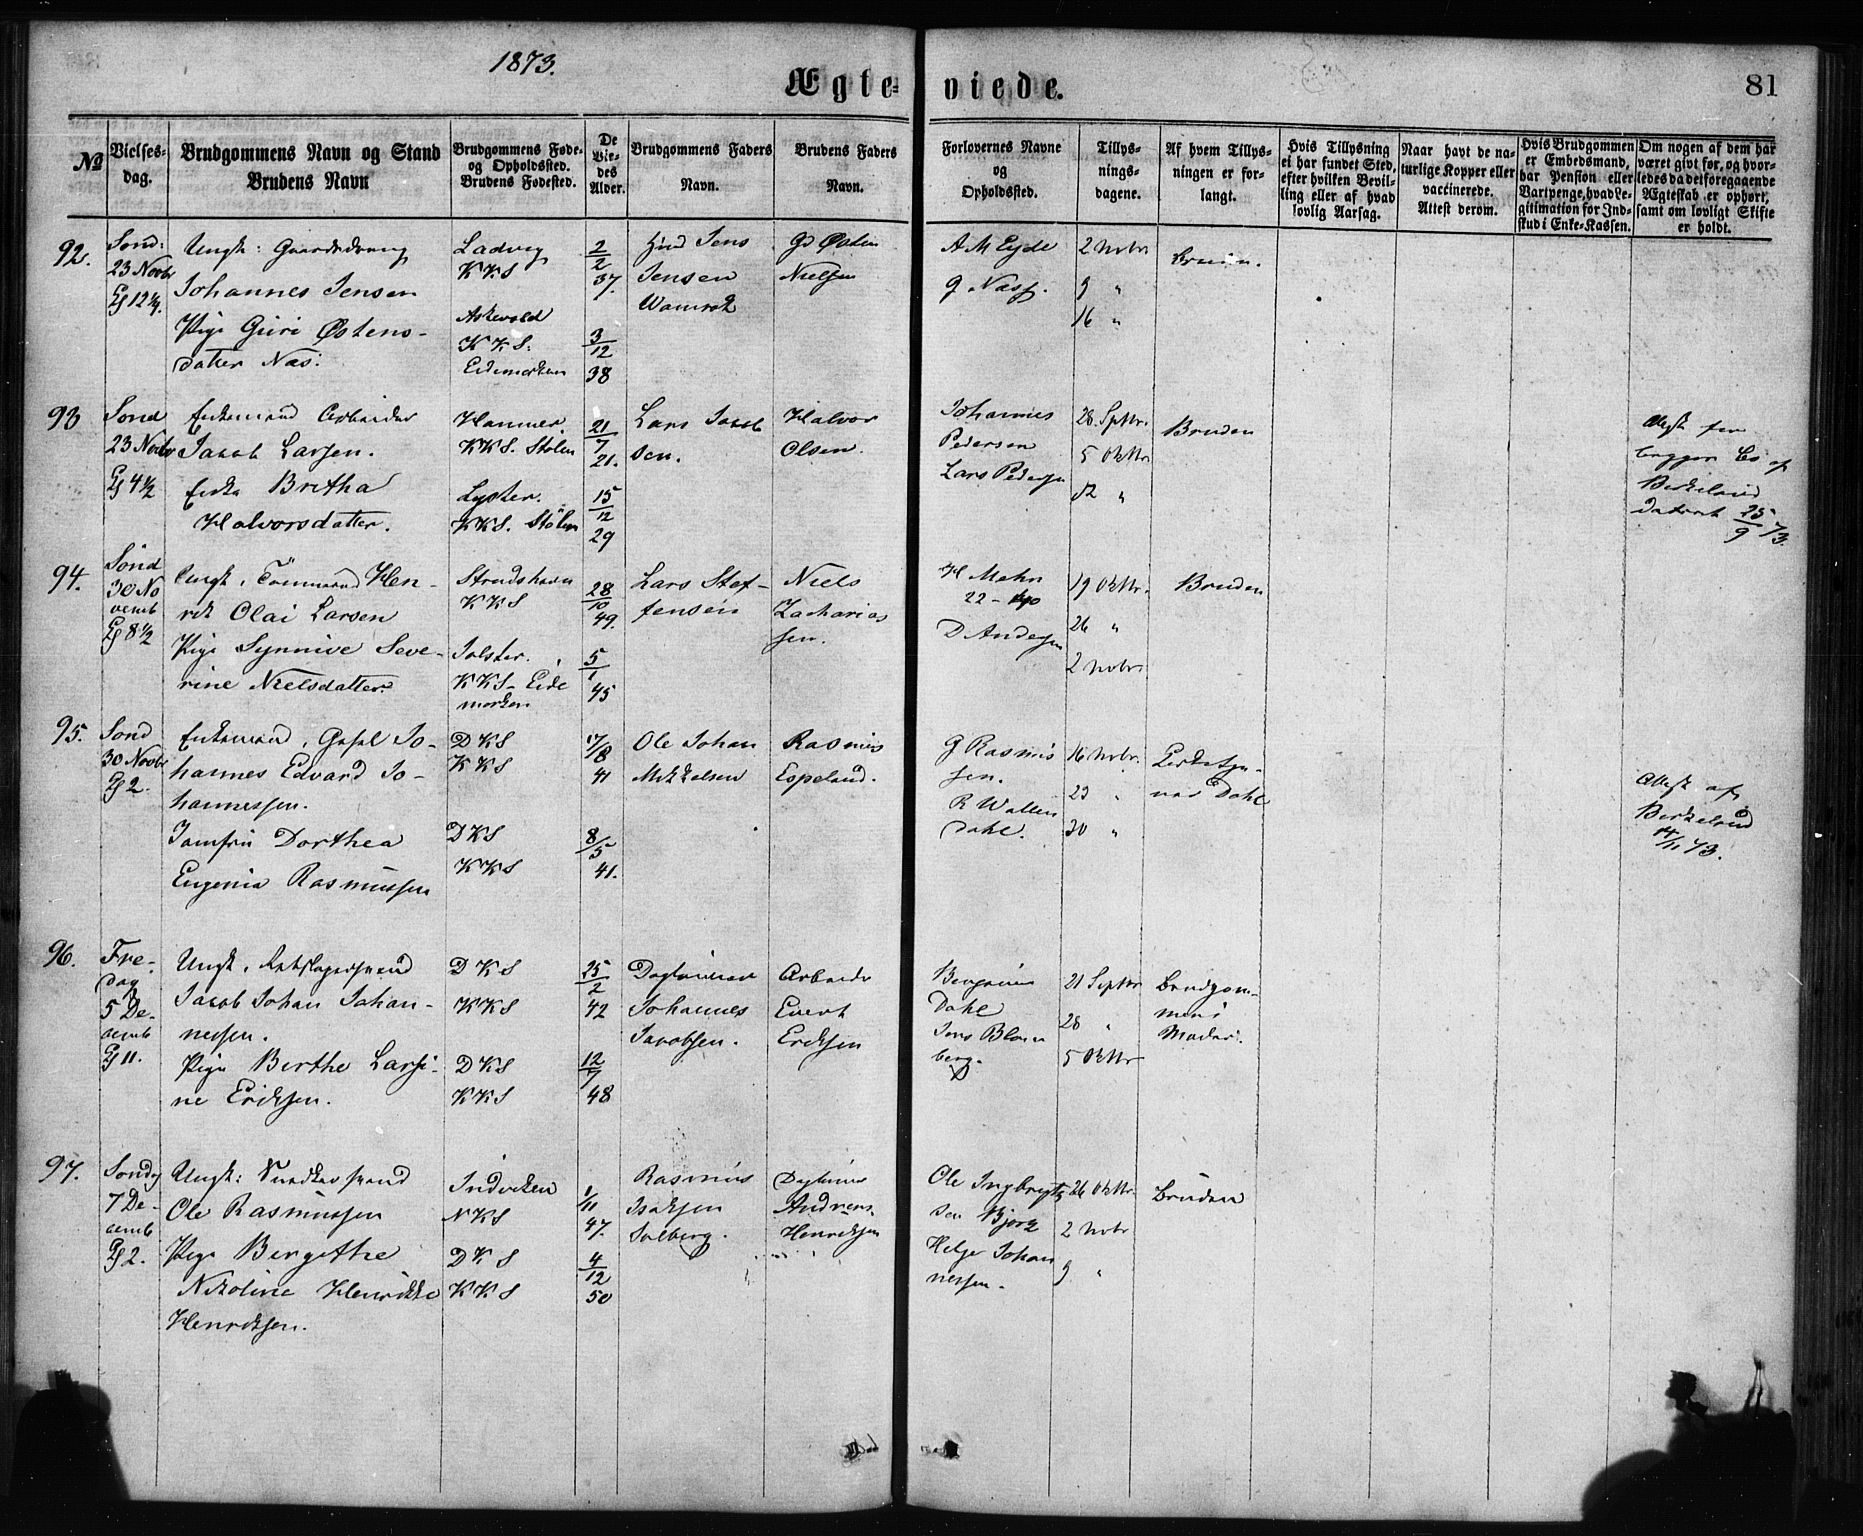 1873.
Ægte-
viede.
81
No
Vielses-
dag.
Brudgommens Navn og Stand
Brudens Navn
Brudgommens Føde-
og Opholdssted.
Brudens Fødested.
De
Vie-
des
Alder.
Brudgommens Faders
Navn.
Brudens Faders
Navn.
Forlovernes Navne
og
Opholdssted.
Tillys-
nings-
dagene.
Af hvem Tillys-
ningen er for-
langt.
Hvis Tillysning
ei har fundet Sted,
efter hvilken Bevil-
ling eller af hvad
lovlig Aarsag.
Naar havt de na-
turlige Kopper eller
vaccinerede.
Attest derom.
Hvis Brudgommen
er Embedsmand,
har Pension eller
Vartpenge, hvad Le-
gitimation for Ind-
skud i Enke-Kassen.
Om nogen af dem har
været givt før, og hvor-
ledes da det foregaaende
Ægteskab er ophørt,
samt om lovligt Skifte
er holdt.
92.
Sond:
23 Novbr
Ungk: Gaardsdreng
Johannes Jensen
Pige Guri Østens-
datter Nas:
Ladvig
KKS
Askevold
KKS:
Eidemarken
2
2
37.
3
12
38
Jens
Jensen
Gd Østen
Nielsen
A M Eyde
2 Novbr
9 "
16 "
93
Sond
23 Novbr
Kl 4½
Enkemand Arbeider
Jacob Larsen.
Enke Britha
Halvorsdatter.
Hammer.
KKS. Stølen
Lyster.
KKS. Stølen
21
7
21.
15
12
29
Lars Jacob
sen.
Halvor
Olsen.
Johannes
Pedersen
Lars Pedersen
28. Septbr.
5 Oktbr
12 "
Bruden
Attest fra
af
Berkeland
dateret 25/9 73.
94.
Sond
30 No
vemb
Kl 8½
Ungk. Tømmermand Hen-
rik Olai Larsen
Pige Synnive Seve-
rine Nielsdatter.
Strudshavn
KKS
Jølster.
KKS - Eide
marken
28
10
49.
5
1
45
Lars Stef-
fensen
Niels
Zacharias
sen.
H Mohn
D Andersen
19 Oktbr.
26 "
2 Novbr.
Bruden
95.
Sond
30 Novbr
Kl 2.
Enkemand, Gesel Jo-
hannes Edvard Jo-
hannessen.
Jomfru Dorthea
Eugenia Rasmussen
DKS
KKS
DKS
KKS
17/8
41
8/5
41.
Ole Johan
Mikkelsen
Rasmus
Espeland.
G Rasmus
sen.
R Wallen
dahl.
16 Novbr.
23 "
30 "
Kirkesan-
Dahl
Attest af
Berkeland
14/11 73.
96.
Fre-
dag
5 De-
cemb
Kl 11.
Ungk. Rebslagersvend
Jacob Johan Johan-
nessen.
Pige Berthe Larsi-
ne Eriksen.
DKS
KKS
DKS
KKS
25
2
42
12
7
48
Daglønner
Johannes
Jacobsen.
Arbeider
Evert
Eriksen
Dahl
Jens Blom
berg.
21 Septbr
28 "
5 Oktbr
Brudgom-
mens
Moder.
97.
Sondag
7 De-
cemb
Kl 2.
Ungk: Snedkersvend
Ole Rasmussen
Pige Bergithe
Nikoline Henrikke
Henriksen.
Indviken
NKS
DKS
KKS
1/11
47.
4
12
50
Rasmus
Isaksen
Solberg.
Daglønner
Andreas
Henriksen
Ole Ingbrigt
sen Bjork
Helge Johan
nessen.
26 Oktbr.
2 Novbr
9 "
Bruden